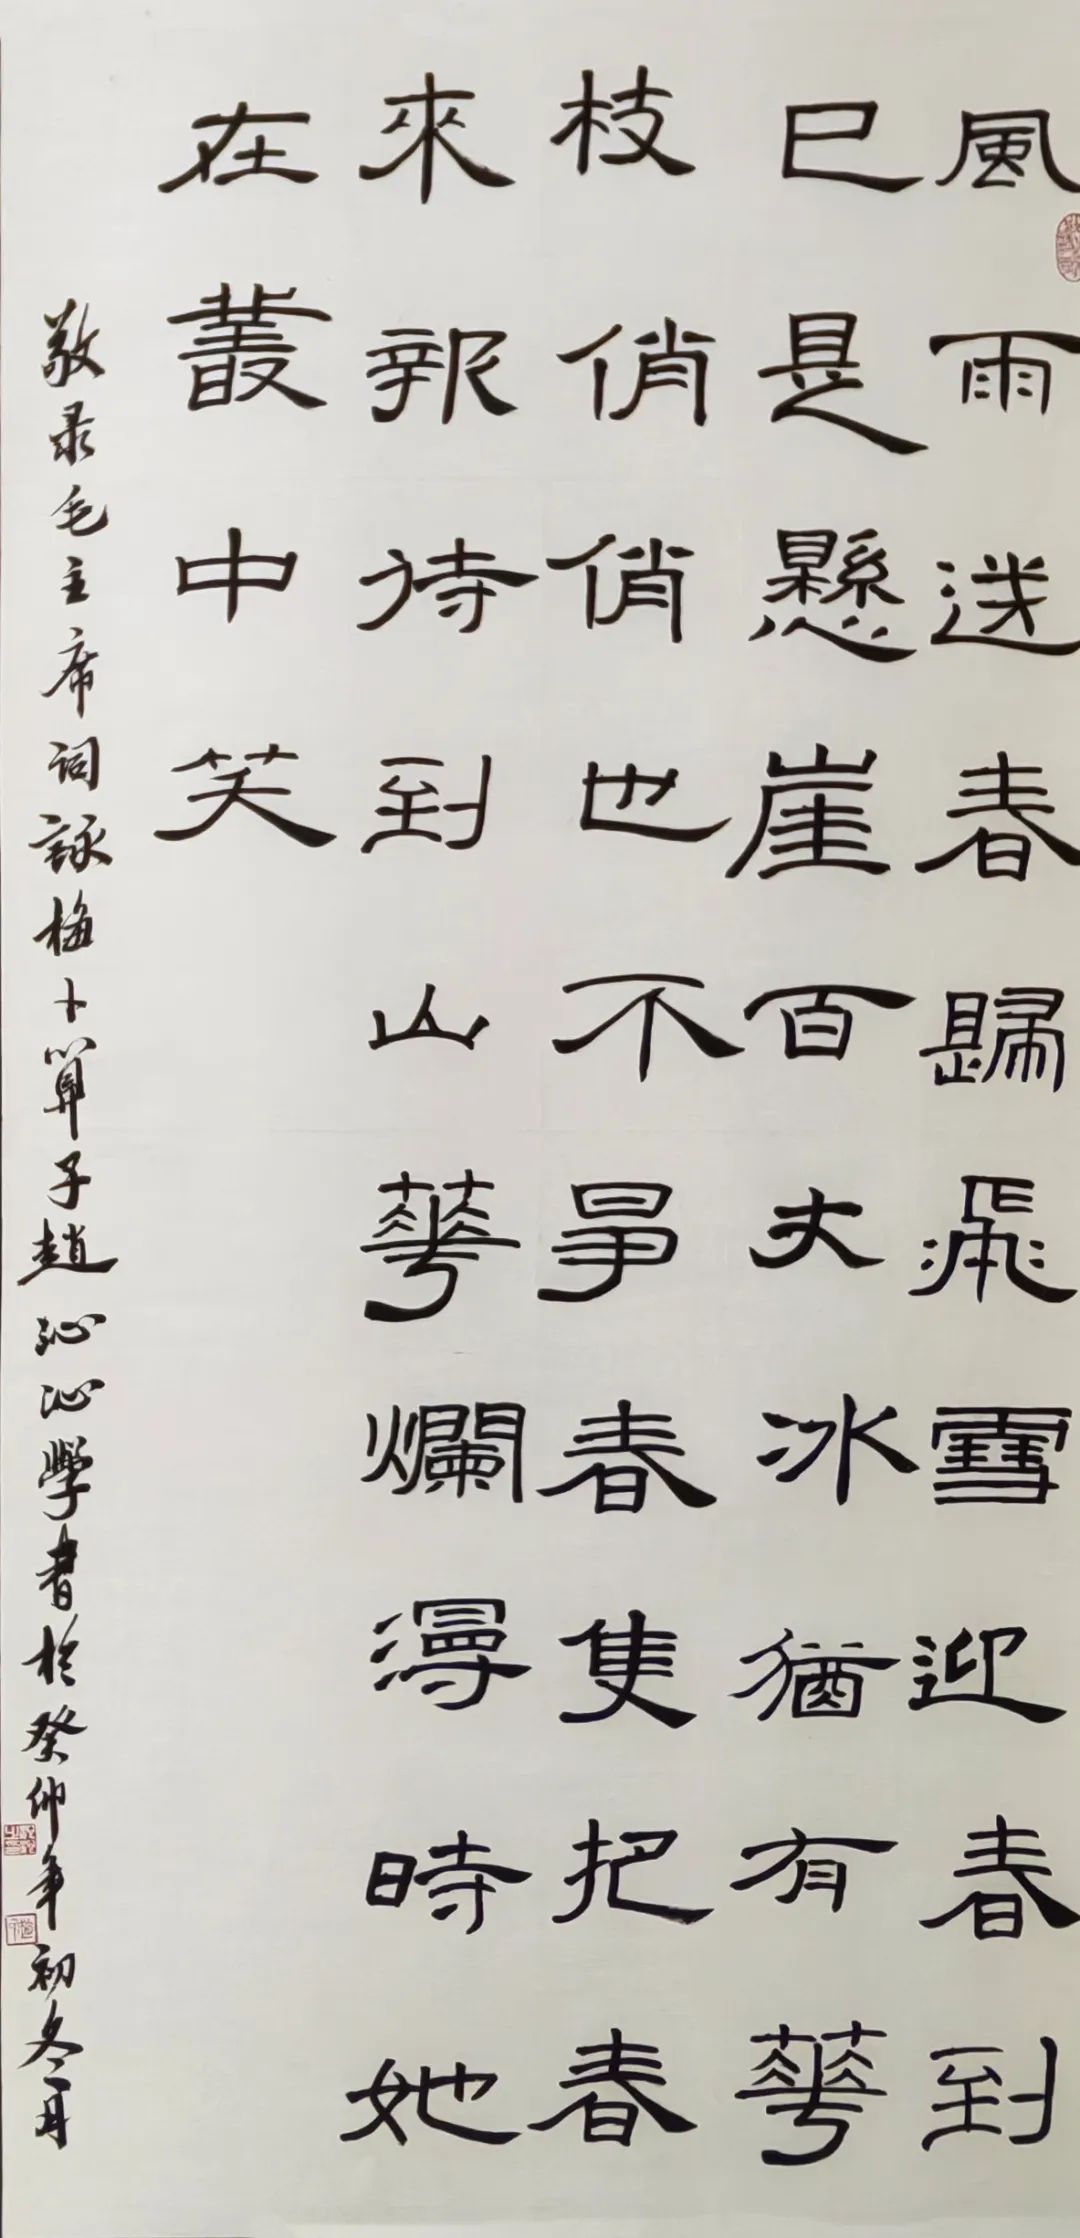 風雨送春歸飛雪迎春到
已是懸崖百丈冰猶有華
枝俏俏也不爭春隻把春
來報待到山華爛漫時她
在叢中笑
敬录毛主席词詠梅卜算子趙沁沁學書於癸卯年初冬月